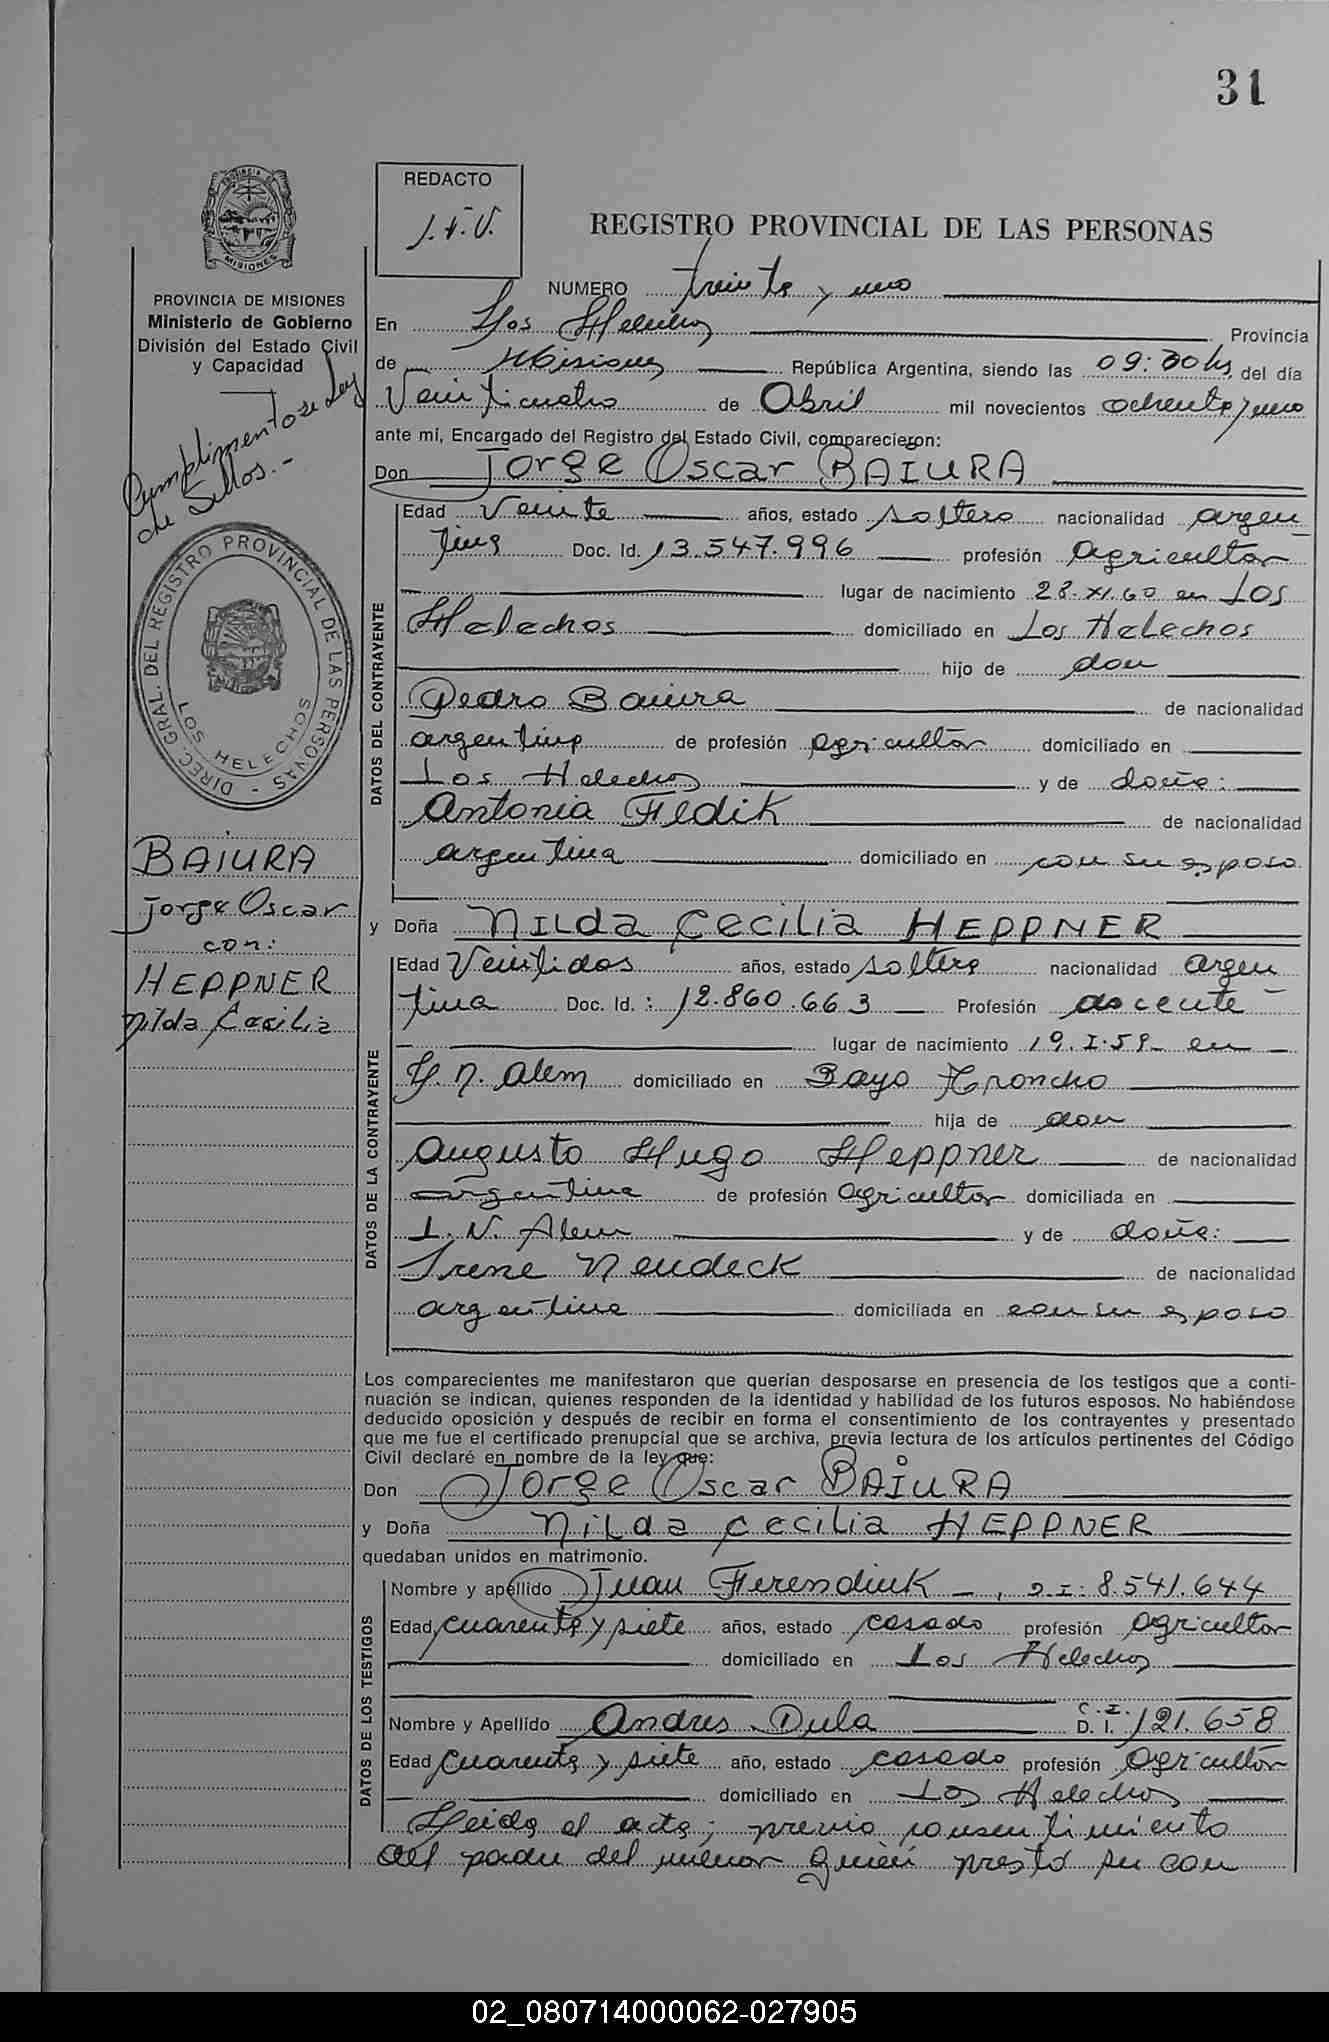 31
REDACTO
J.F.V.
REGISTRO PROVINCIAL DE LAS PERSONAS
PROVINCIA DE MISIONES
NUMERO treinta y uno
PROVINCIA DE MISIONES
Ministerio de Gobierno
División del Estado Civil
y Capacidad
Cumplimento se Ley
de Sellos.-
DIREC. GRAL. DEL REGISTRO PROVINCIAL DE LAS PERSONAS - LOS HELECHOS
BAIURA
Jorge Oscar
con:
HEPPNER
Nilda Cecilia
En Los Helechos Provincia
de Misiones República Argentina, siendo las 09:30hs. del día
Veinticuatro de Abril mil novecientos ochenta y uno
ante mi, Encargado del Registro del Estado Civil, comparecieron:
Don Jorge Oscar BAIURA
DATOS DEL CONTRAYENTE
Edad Veinte años, estado soltero nacionalidad argen
tina Doc. Id. 13.547.996 profesión Agricultor
lugar de nacimiento 28.XI.60 en Los
Helechos domiciliado en Los Helechos
hijo de don
Pedro Baiura de nacionalidad
argentina de profesión agricultor domiciliado en
Los Helechos y de doña:
Antonia Fedik de nacionalidad
argentina domiciliado en con su esposo
y Doña Nilda Cecilia HEPPNER
DATOS DE LA CONTRAYENTE
Edad Veintidos años, estado soltera nacionalidad argen
tina Doc. Id.: 12.860.663 Profesión docente
lugar de nacimiento 19.I.59 en
L. N. Alem domiciliado en Bayo Troncho
hija de don
Augusto Hugo Heppner de nacionalidad
argentina de profesión agricultor domiciliada en
L. N. Alem y de doña:
Irene Neudeck de nacionalidad
argentina domiciliada en con su esposo
Los comparecientes me manifestaron que querían desposarse en presencia de los testigos que a conti-
nuación se indican, quienes responden de la identidad y habilidad de los futuros esposos. No habiéndose
deducido oposición y después de recibir en forma el consentimiento de los contrayentes y presentado
que me fue el certificado prenupcial que se archiva, previa lectura de los artículos pertinentes del Código
Civil declaré en nombre de la ley que:
Don Jorge Oscar BAIURA
y Doña Nilda Cecilia HEPPNER
quedaban unidos en matrimonio.
DATOS DE LOS TESTIGOS
Nombre y apellido Juan Ferendiuk, D.I: 8.541.644
Edad cuarenta y siete años, estado casado profesión agricultor
domiciliado en Los Helechos
Nombre y Apellido Andres Dula C.I. D. I. 121.658
Edad cuarenta y siete año, estado casado profesión agricultor
domiciliado en Los Helechos
Leida el acta; previo consentimiento
del padre del menor quien prestó su con
02_080714000062-027905